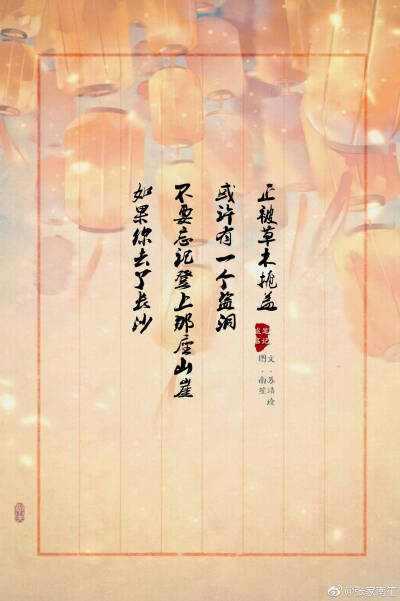 如果你去了长沙
不要忘记登上那座山崖
或许有一个盗洞
正被草木掩盖
盗墓
笔记
图·南笙
文·苏清
@张家南笙